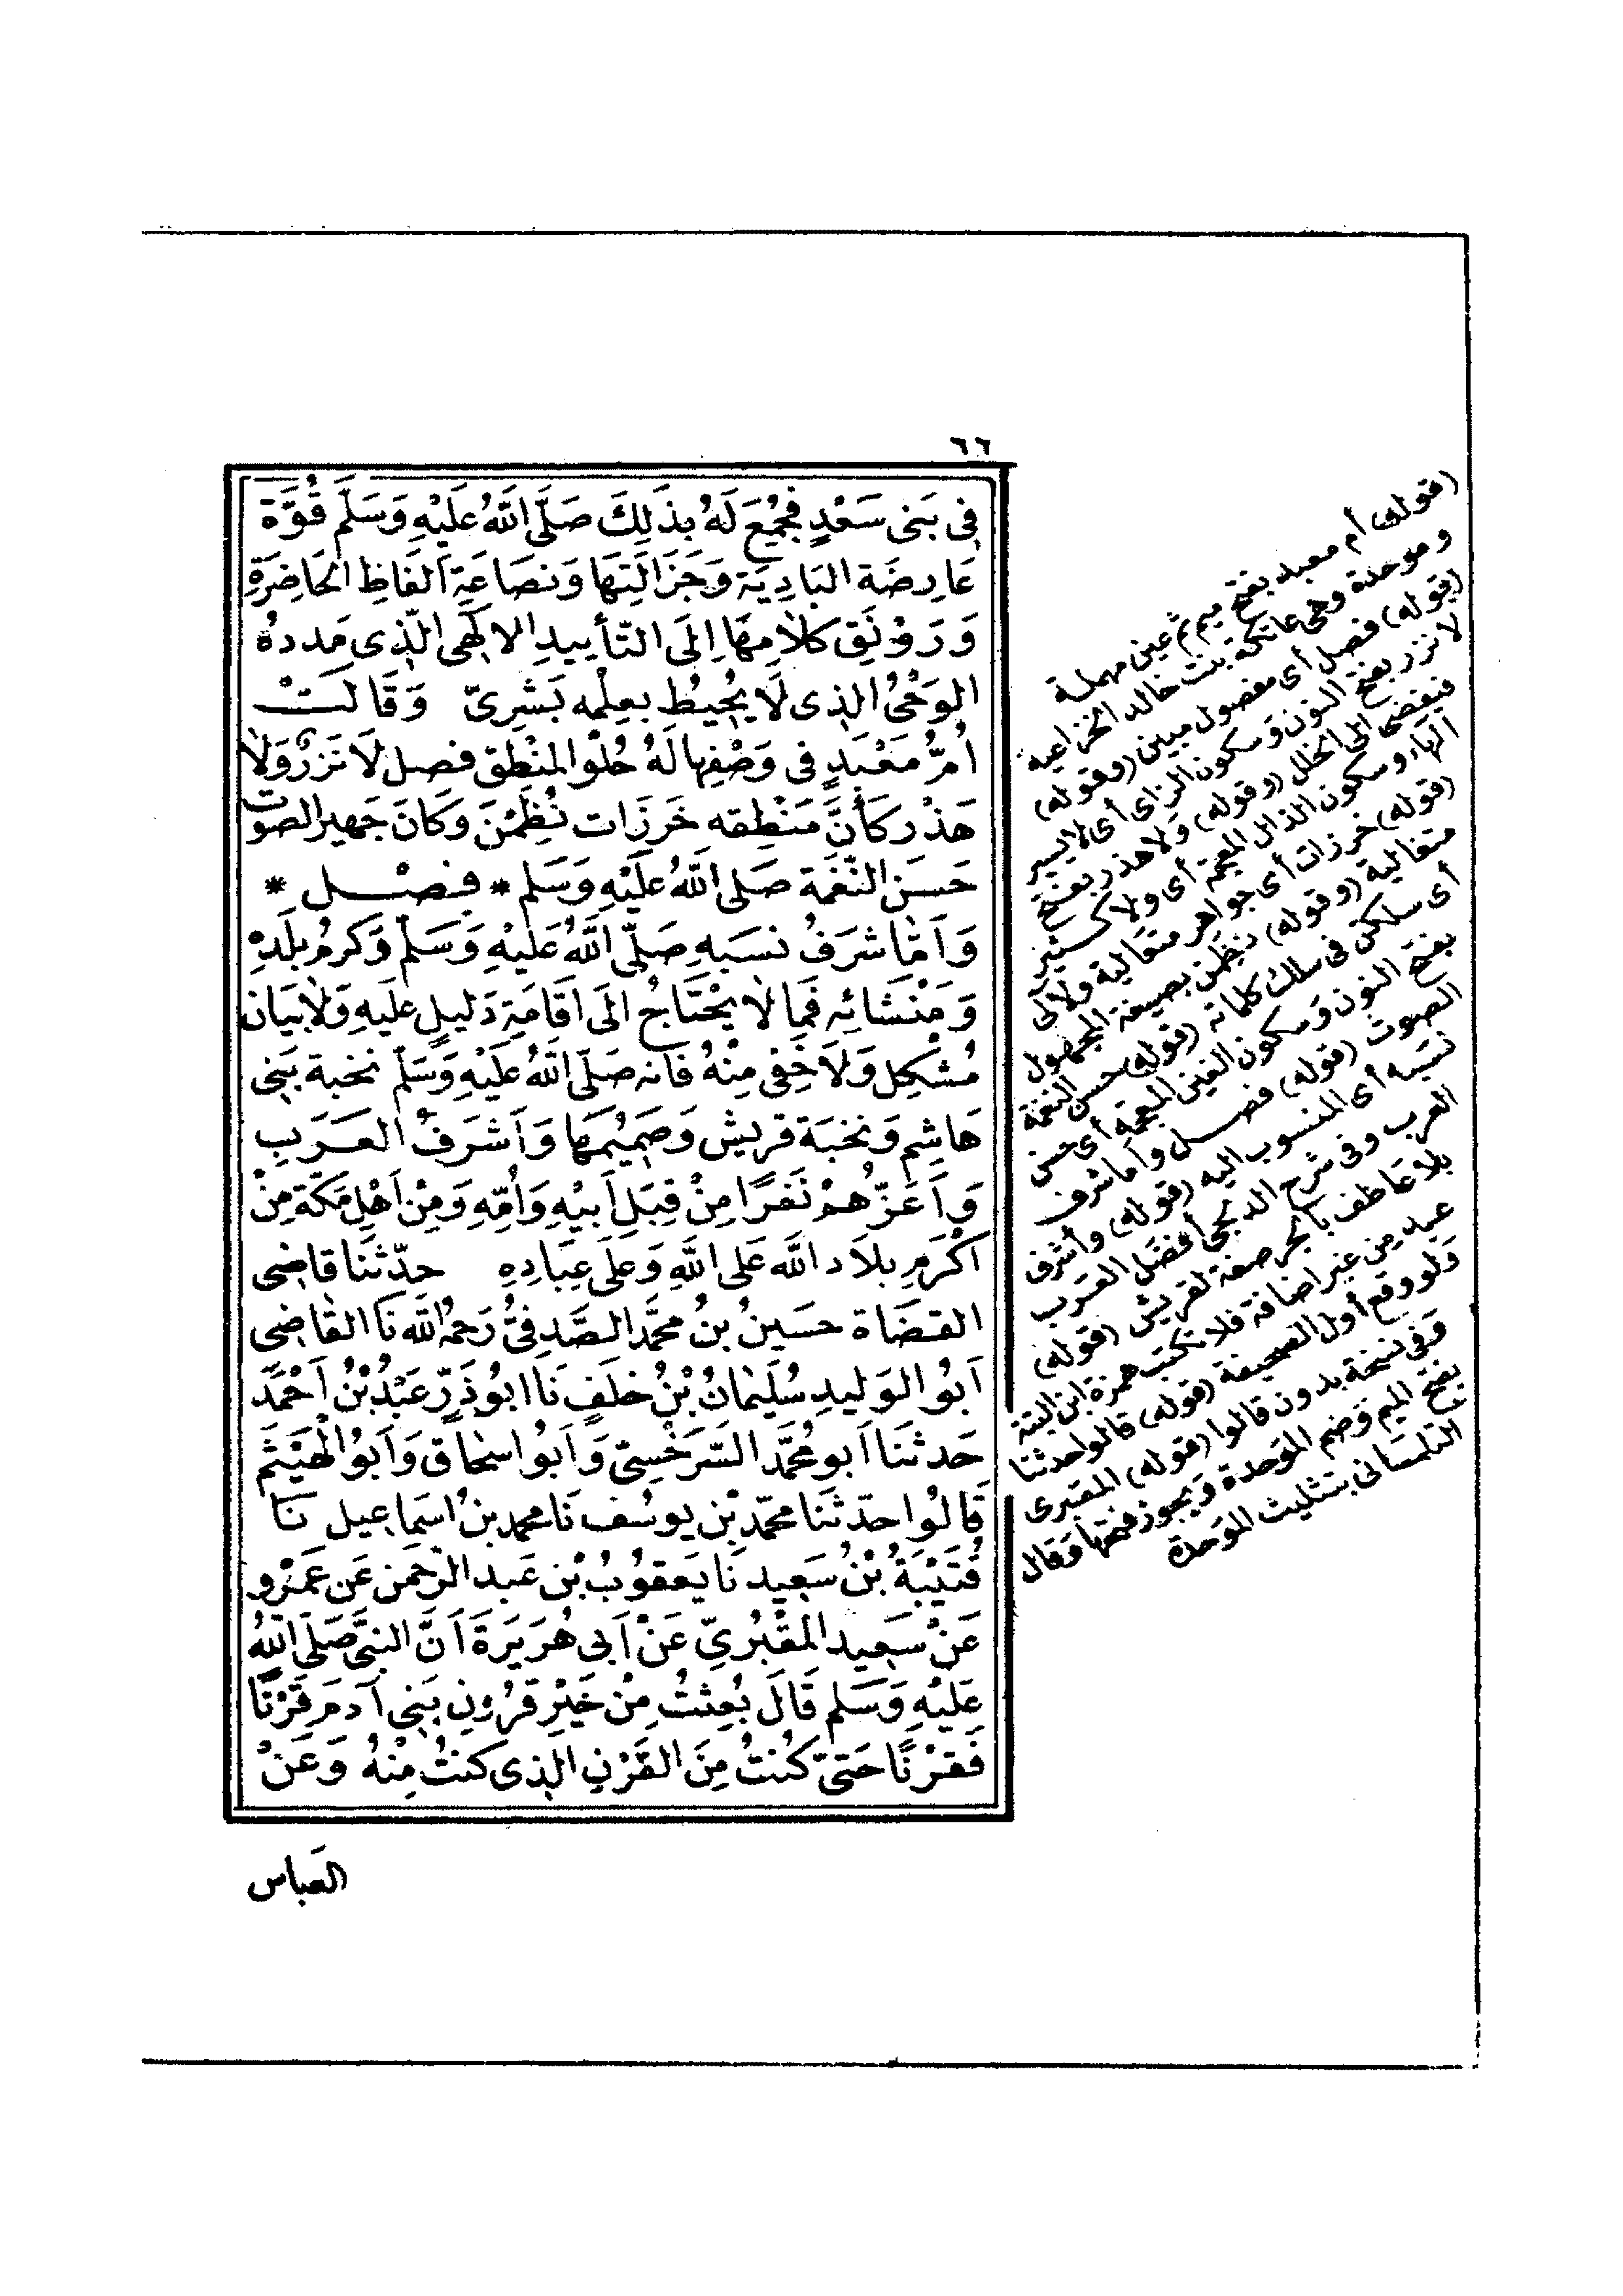 ٦٦
فِى بَنى سَعْدٍ فَجُمِعَ لَهُ بذَلِكَ صَلَّى اللَّهُ عَلَيْهِ وَسَلَّم قُوَّة
عَارِضَة البَادِيَة وَجَزَالَتِهَا وَنصَاعَة أَلفَاظِ الحَاضِرَةِ
وَرَوْنَق كلَامِهَا اِلَى التّأييدِ الالٰهى الّذِى مَددهُ
الوَحْىُ الذِى لَا يُحِيطُ بعِلْمه بَشَرِىّ وَقَالَتْ
أُمُّ مَعْبَدٍ فى وَصْفِها لَهُ حُلْو المنْطِق فصل لَا نَزْرٌ وَلَا
هَذْر كَأَنَّ مَنْطِقه خَرَزَات نُظِمْنَ وَكَانَ جَهيرَ الصَوت
حَسَن النّغمَة صَلى اللَّهُ عَلَيْهِ وَسَلم * فصْل *
وَأَمّا شَرَفُ نسَبَهِ صَلّى اللَّهُ عَلَيْهِ وَسَلمْ وَكَرَمُ بلَدِهِ
وَمَنْشَائِهِ فَمِمّا لَا يَحْتَاجُ الَى اقَامَةِ دَليلٍ عَلَيهِ وَلَا بيَان
مُشْكِل وَلَا خَفِى مِنْهُ فَانه صَلّى اللَّهُ عَلَيْهِ وَسَلّم نخبة بَنِى
هَاشِم وَنخبَة قريش وَصَمِيْمهَا وَاَشرَفُ العَرَبِ
وَاَعَزُّهُمْ نَفَرًا مِنْ قِبَلِ أَبيْهِ وَاُمِّهِ وَمِنْ اَهْلِ مَكّة مِنْ
اَكْرَمِ بلَاد اللَّه عَلى اللَّهِ وَعَلى عِبَادِهِ حدّثنَا قاضِى
القضَاة حسَين بنُ محمَّد الصَّدِفىُّ رَحمَهُ اللَّه نَا القَاضِى
اَبُو الوَليدِ سُلَيمَانُ بْنُ خلَفٍ نَا ابُو ذَرٍّ عَبْدُ بْنُ اَحْمَدَ
حَدثنَا اَبو مُحَمَّد السَّرَخْسِىّ وَاَبُو اسحَاق وَاَبُو الْهَيْثَم
قَالُوا حدّثنَا محمّد بْن يوسُف نَا محمد بن اسمَاعِيل نَا
قُتَيْبَةُ بْنُ سَعِيد نَا يَعقوُبُ بْن عَبد الرّحمن عَن عَمْرو
عَنْ سَعِيد المقْبُرِىّ عَنْ اَبى هُرَيرَةَ اَنَّ النبىَّ صَلى اللَّهُ
عَلَيْهِ وَسَلم قَالَ بُعِثتُ مِنْ خَيْرِ قرُوْنِ بَنِى آدَمَ قَرْنًا
فَقرْنًا حَتىّ كُنتُ مِنَ القَرْنِ الذِى كنتُ مِنْهُ وَعَنْ
العَباس
(قوله) أم معبد بفتح ميم ثم عين مهملة
وموحدة وهى عاتكة بنت خالد الخزاعية
(قوله) فصل أى مفصول مبين (وقوله)
لا نزر بفتح النون وسكون الزاى أى لا يسير
فيفضى الى الخلل (وقوله) ولا هذر بفتح
الهاء وسكون الذال المعجمة أى ولا كثير
(قوله) خرزات أى جواهر متعالية ولآلى
متغالية (وقوله) نظمن بصيغة المجهول
أى سلكن فى سلك كلماته (قوله) حسن النغمة
بفتح النون وسكون الغين المعجمة أى حسن
الصوت (قوله) فصل وأما شرف
نسبه أى المنسوب اليه (قوله) وأشرف
العرب وفى شرح الدلجى أفضل العرب
بلا عاطف بالجر صفة لقريش (قوله)
عبد من غير اضافة فلا تكتب همزة ابن البتة
ولو وقع أول الصحيفة (قوله) قالوا حدثنا
وفى نسخة بدون قالوا (قوله) المقبرى
بفتح الميم وضم الموحدة ويجوز فتحها وقال
التلمسانى بتثليث الموحدة